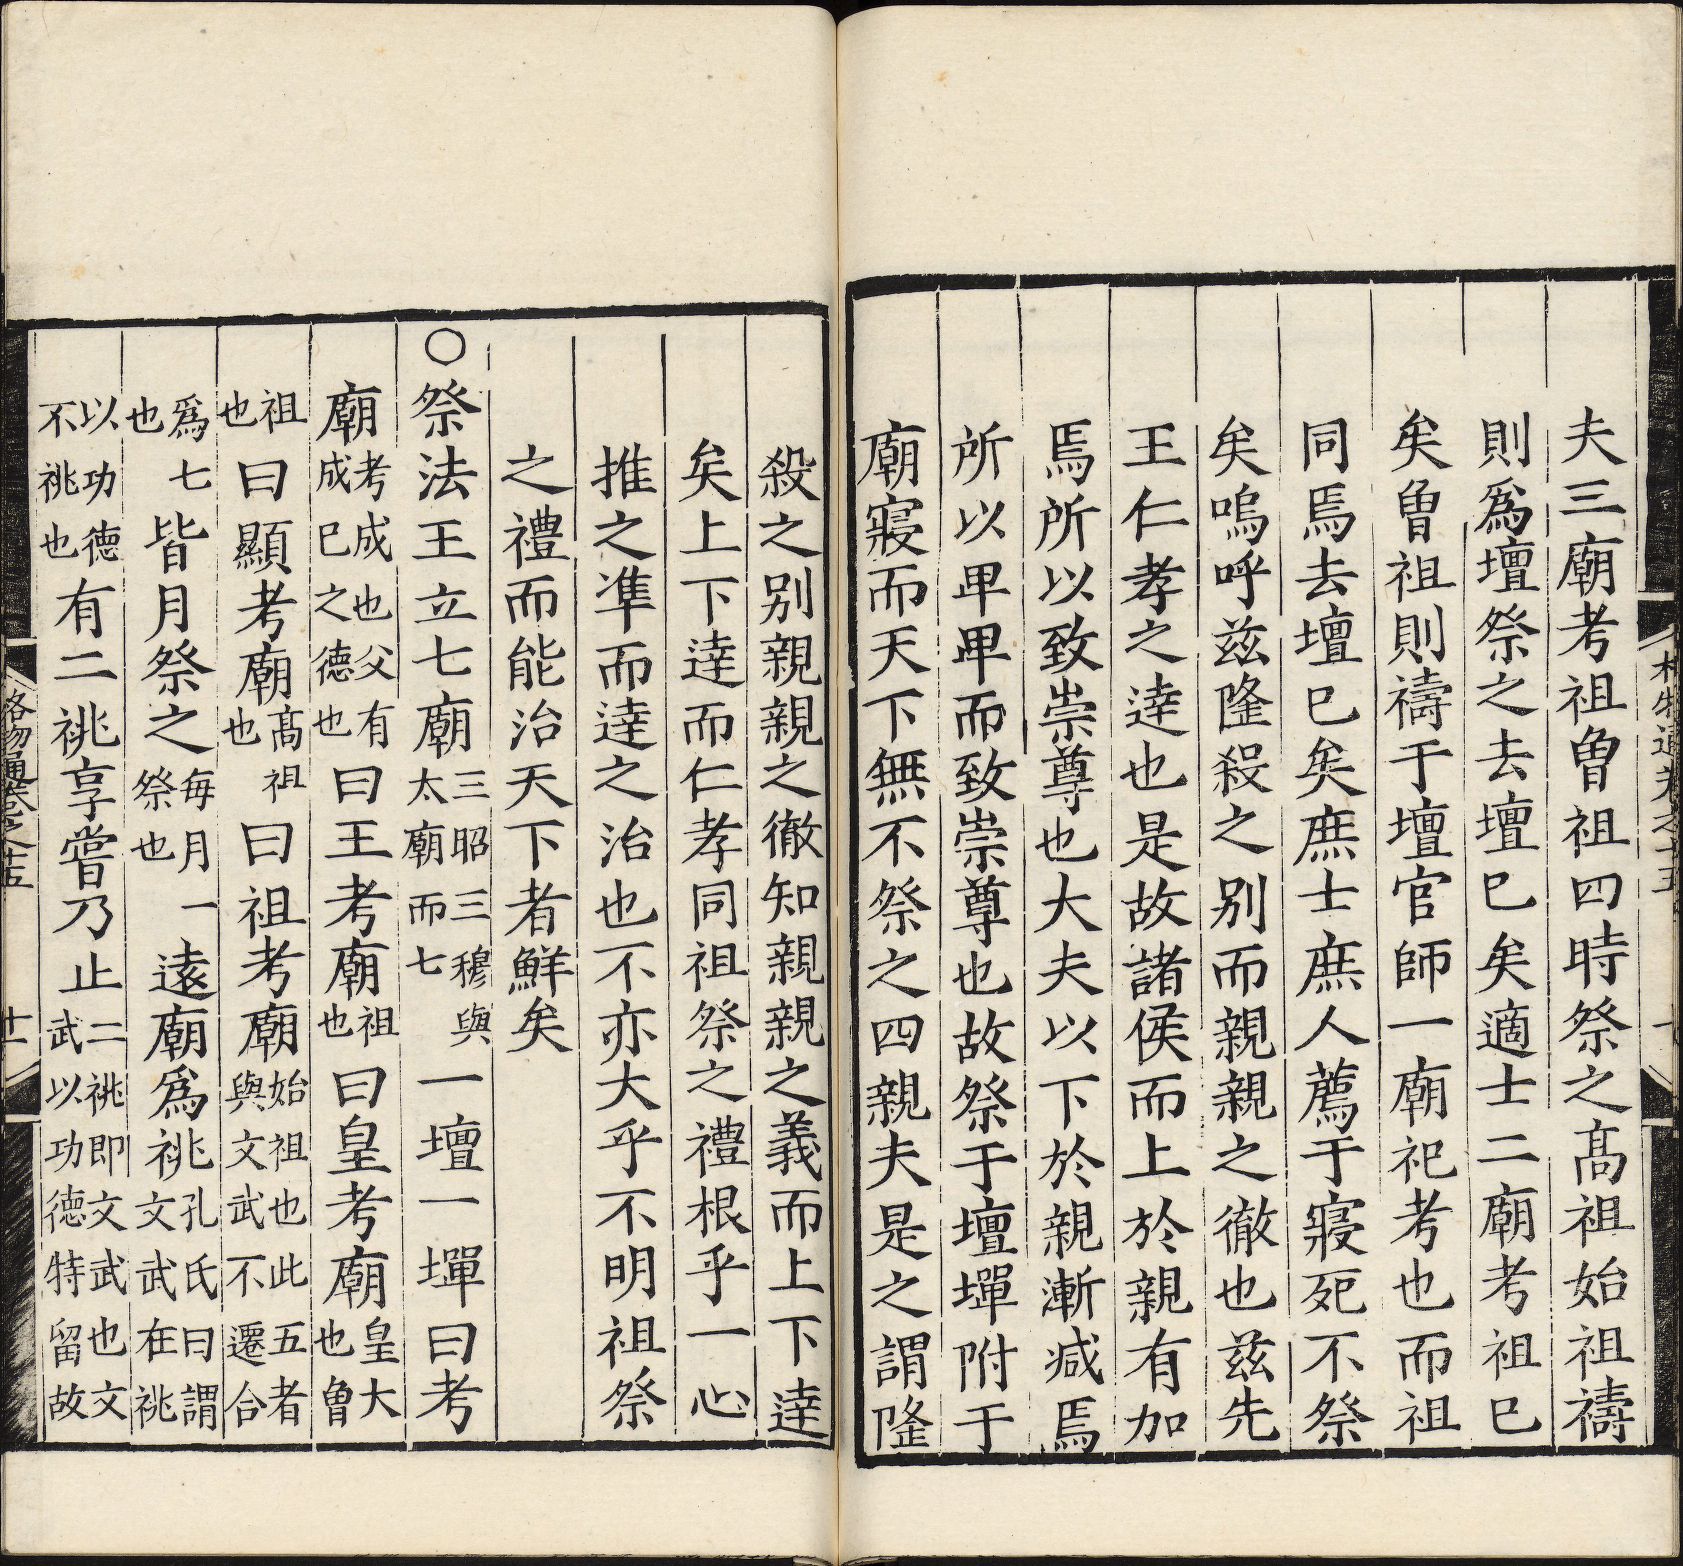 夫三廟考祖曾祖四時祭之高祖始祖禱
則爲壇祭之去壇已矣適士二廟考祖已
矣曾祖則禱于壇官師一廟祀考也而祖
同焉去壇已矣庶士庶人薦于寢死不祭
矣嗚呼兹隆殺之别而親親之徹也兹先
王仁孝之達也是故諸侯而上於親有加
焉所以致崇尊也大夫以下於親漸减焉
所以卑卑而致崇尊也故祭于壇墠附于
廟寢而天下無不祭之四親夫是之謂隆
殺之别親親之徹知親親之義而上下達
矣上下達而仁孝同祖祭之禮根乎一心
推之準而達之治也不亦大乎不明祖祭
之禮而能治天下者鮮矣
○祭法王立七廟三昭三穆與太廟而七一壇一墠曰考
廟考成也父有成已之德也曰王考廟祖也曰皇考廟皇大也曾
祖也曰顯考廟高祖也曰祖考廟始祖也此五者與文武不遷合
爲七也皆月祭之每月祭也一遠廟爲祧孔氏曰謂文武在祧
以功德不祧也有二祧享嘗乃止二祧即文武也文武以功德特留故
格物通卷之十五 十一